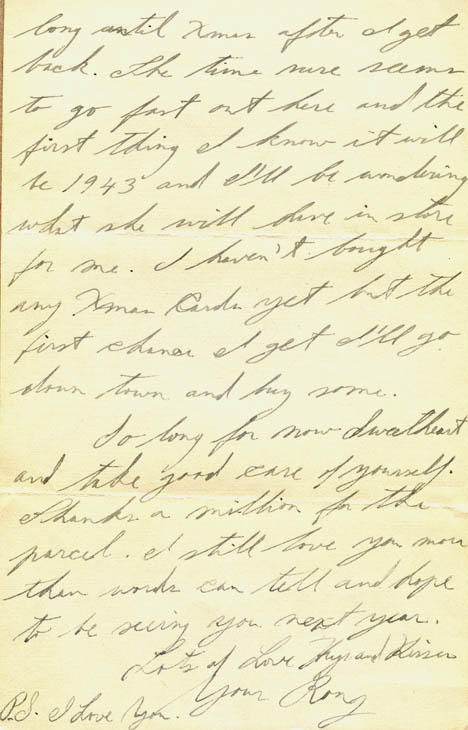 long until Xmas after I get
back. The time sure seems
to go fast out here and the
first thing I know it will
be 1943 and I'll be wondering
what she will have in store
for me. I haven't bought
any Xmas Cards yet but the
first chance I get I'll go
down town and buy some.
So long for now Sweetheart
and take good care of yourself.
Thanks a million for the
parcel. I still love you more
than words can tell and hope
to be seeing you next year.
Lots of Love Hugs and Kisses
Your
P.S. I Love You.